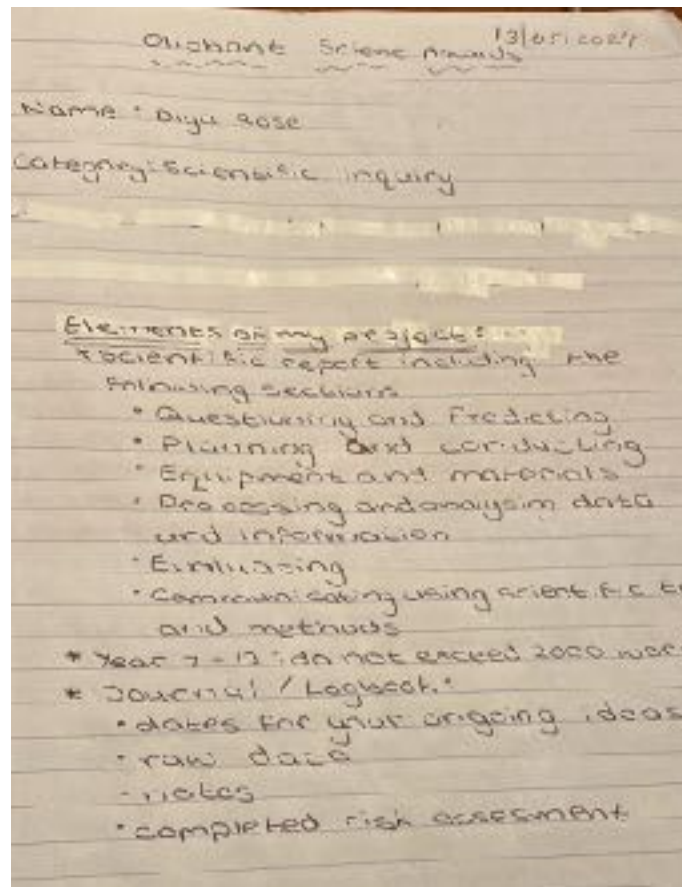 Oliphant Scienc Awards
Name : Diyu Rose
Category: Scientific inquiry
Elements of my project :
* Scientific report including the
following sections
• Questioning and Predicting
• Planning and conducting
• Equipment and materials
• Processing and analysin data
and information
• Evaluating
• Communicating using scientific
and methods
* Year 7 - 12 : do not exceed 2000
* Journal / Logbook :
• dates for your ongoing ideas
• raw data
• notes
• completed risk assesment